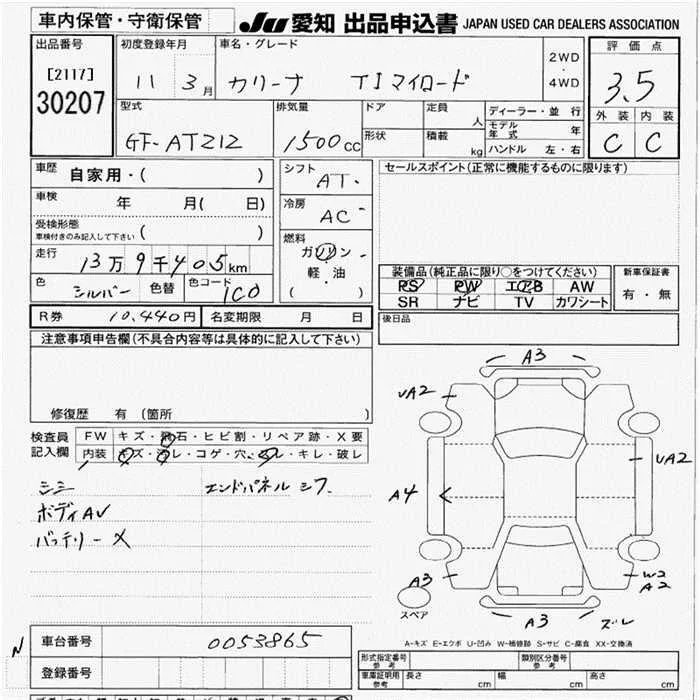 車内保管・守衛保管
JU 愛知 出品申込書 JAPAN USED CAR DEALERS ASSOCIATION
出品番号
[2117]
30207
初度登録年月
11 3月
車名・グレード
カリーナ TIマイロード
2WD
・
4WD
評価点
3.5
外装 内装
C C
型式
GF-AT212
排気量
1500cc
ドア
定員
人
形状
積載
kg
ディーラー・並行
モデル年式 年
ハンドル 左・右
車歴
自家用・( )
車検
年 月( 日)
受検形態
車検付きのみ記入して下さい ( )
走行
13万9千405km
色
シルバー 色替 色コード 1C0
シフト
AT
冷房
AC
燃料
ガソリン
・
軽油
( )
セールスポイント(正常に機能するものに限ります)
装備品(純正品に限り○をつけてください)
PS PW エアB AW
SR ナビ TV カワシート
新車保証書
有・無
後日品
R券 10,440円 名変期限 月 日
注意事項申告欄(不具合内容等は具体的に記入して下さい)
修復歴 有 (箇所 )
検査員
記入欄
FW キズ・飛石・ヒビ割・リペア跡・X要
内装 キズ・汚レ・コゲ・穴・スレ・キレ・破レ
シミ
エンドパネル シワ
ボディAV
バッテリーX
A3
UA2
UA2
A4
A3
W2
A2
A3
ズレ
スペア
A-キズ E-エクボ U-凹み W-補修跡 S-サビ C-腐食 XX-交換済
N
車台番号 0053865
登録番号
形式指定番号
参考
類別区分番号
参考
車庫証明用
参考
長さ cm 幅 cm 高さ cm